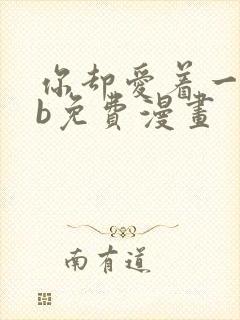 你却愛着一
b免費漫畫
南有道